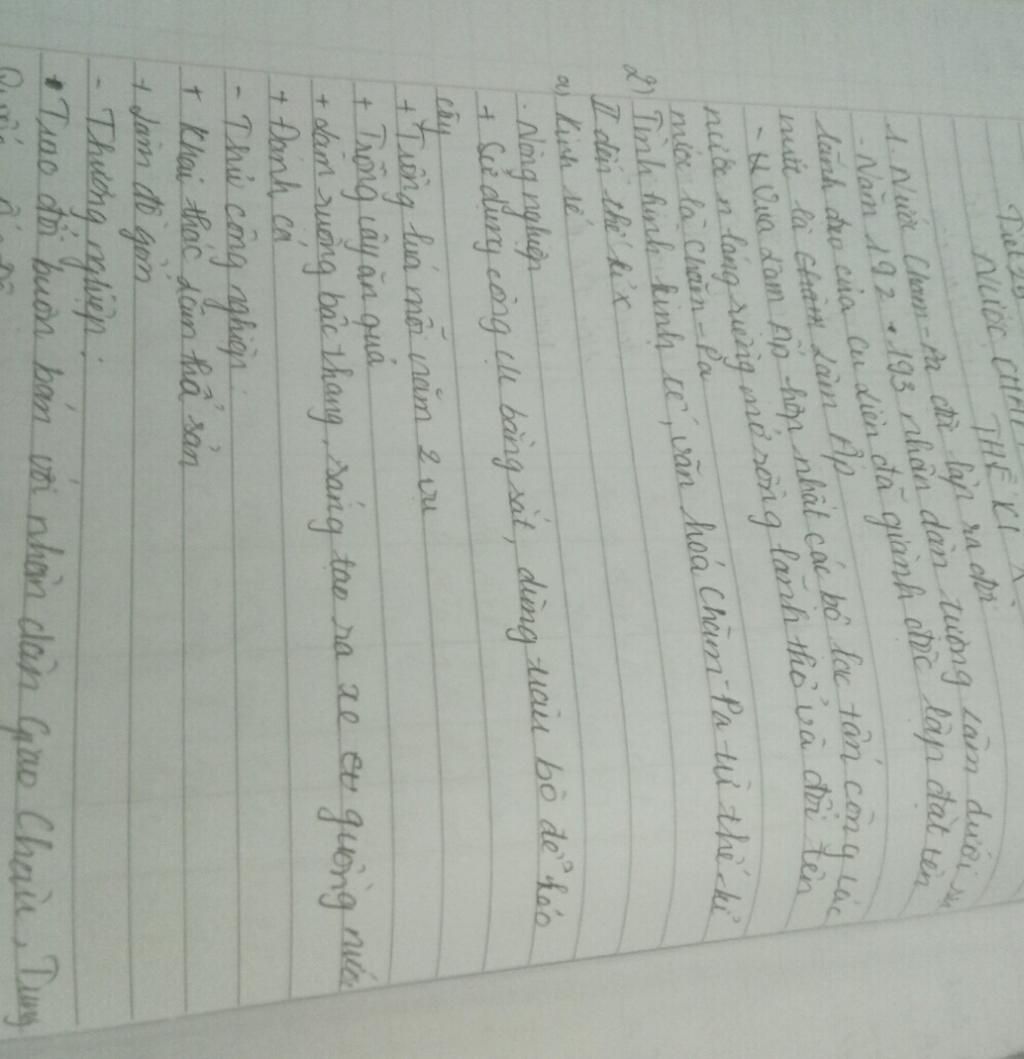 Tiết 28
NƯỚC CHĂM
THẾ KỈ X
1. Nước Cham-Pa độc lập ra đời
- Năm 192 - 193 nhân dân tượng Lâm dưới sự
lãnh đạo của Cu Liên đã giành độc lập đặt tên
nước là Lâm Ấp
- Vua Lâm Ấp hợp nhất các bộ lạc tấn công các
nước láng riềng mở rộng lãnh thổ và đổi tên
nước là Chăm-Pa
2) Tình hình kinh tế, văn hoá Chăm-Pa từ thế kỉ
II đến thế kỉ X
a) Kinh tế
. Nông nghiệp
+ Sử dụng công cụ bằng sắt, dùng trâu bò để kéo
cày
+ Trồng lúa mỗi năm 2 vụ
+ Trồng cây ăn quả
+ Làm ruộng bậc thang, sáng tạo ra xe guồng nước
+ Đánh cá
- Thủ công nghiệp:
+ Khai thác lâm thổ sản
+ Làm đồ gốm
- Thương nghiệp:
• Trao đổi buôn bán với nhân dân Giao Châu, Trung